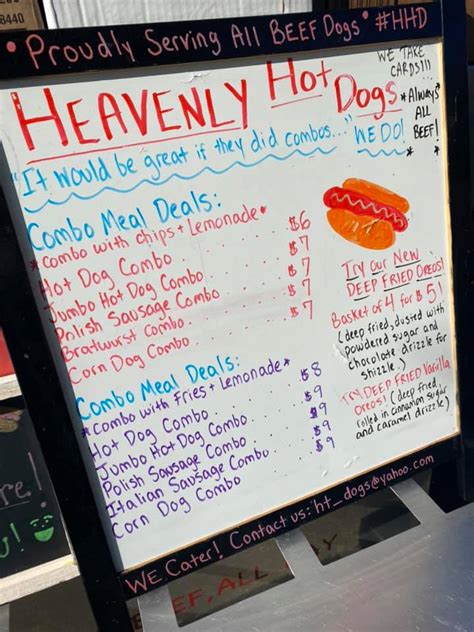 8440
• Proudly Serving All BEEF Dogs • #HHD
HEAVENLY Hot Dogs
WE TAKE
CARDS!!!
*Always
ALL
BEEF!
"It would be great if they did combos..." WE DO!*
Combo Meal Deals:
*Combo with chips + Lemonade*
Hot Dog Combo . . . $6
Jumbo Hot Dog Combo . . . $7
Polish Sausage Combo . . . $7
Bratwurst Combo . . . $7
Corn Dog Combo . . . $7
Combo Meal Deals:
*Combo with Fries + Lemonade*
Hot Dog Combo . . . $8
Jumbo Hot Dog Combo . . . $9
Polish Sausage Combo . . . $9
Italian Sausage Combo . . . $9
Corn Dog Combo . . . $9
Try Our New
DEEP FRIED OREOS!
Basket of 4 for $5!
(deep fried, dusted with
powdered sugar and
chocolate drizzle for
shizzle.)
TRY DEEP FRIED Vanilla
Oreos! (deep fried,
rolled in cinnamon sugar
and caramel drizzle)
WE Cater! Contact us: ht_dogs@yahoo.com
re!
u!
EEF, ALL